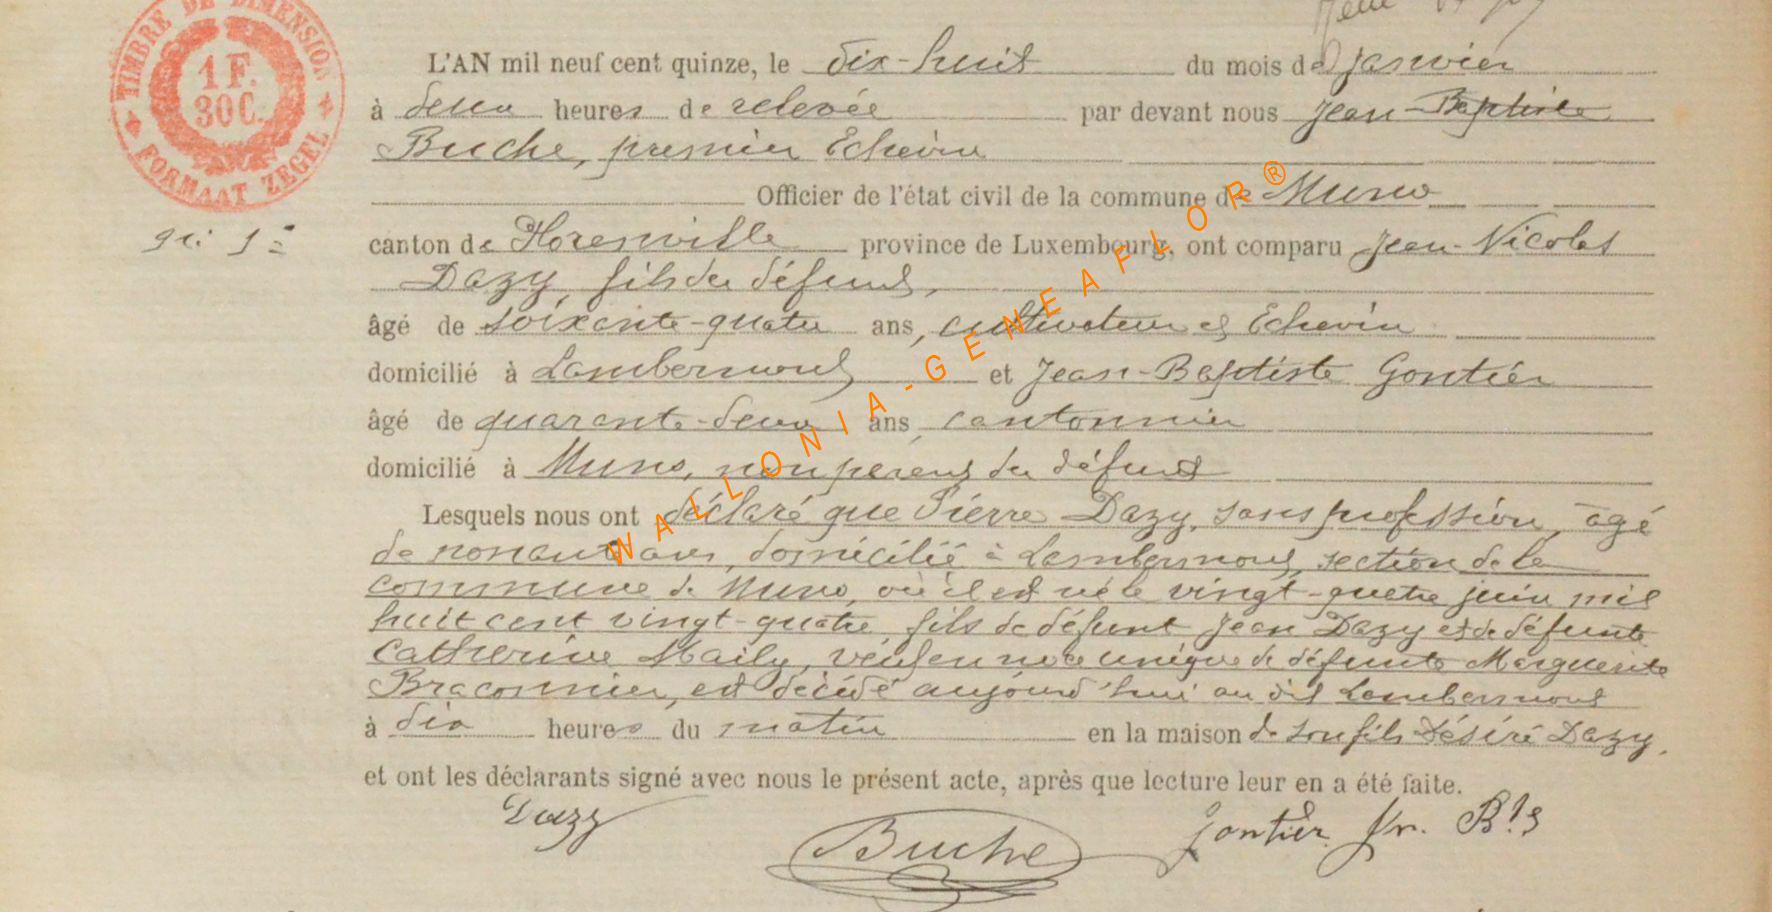 TIMBRE DE DIMENSION
1 F.
30 C.
FORMAAT ZEGEL
L'AN mil neuf cent quinze, le dix-huit du mois de janvier
à deux heures de relevée par devant nous Jean-Baptiste
Buche, premier Echevin
Officier de l'état civil de la commune de Muno
canton de Florenville province de Luxembourg, ont comparu Jean-Nicolas
Dazy, fils du défunt,
âgé de soixante-quatre ans, cultivateur et Echevin
domicilié à Lambermont et Jean-Baptiste Gontier
âgé de quarante-deux ans, cantonnier
domicilié à Muno, non parent du défunt
Lesquels nous ont déclaré que Pierre Dazy, sans profession, âgé
de nonante ans, domicilié à Lambermont, section de la
commune de Muno, où il est né le vingt-quatre juin mil
huit cent vingt-quatre, fils de défunt Jean Dazy et de défunte
Catherine Maily, veuf en noce unique de défunte Marguerite
Braconnier, est décédé aujourd'hui au dit Lambermont
à dix heures du matin en la maison de son fils Désiré Dazy,
et ont les déclarants signé avec nous le présent acte, après que lecture leur en a été faite.
Dazy
Buche
Gontier Jn. Bte
WALLONIA-GENEAFLOR®